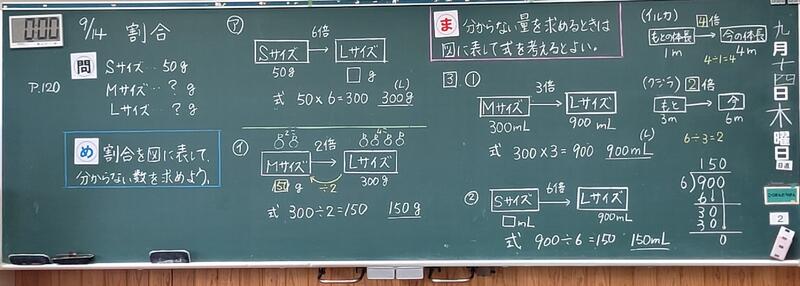 000
9/14 割合
P.120
問 Sサイズ…50g
Mサイズ…?g
Lサイズ…?g
め 割合を図に表して、
分からない数を求めよう。
ア
6倍
Sサイズ → Lサイズ
50g □g
(L)
式 50×6=300 300g
イ
2倍
Mサイズ → Lサイズ
150g ÷2 300g
式 300÷2=150 150g
ま 分からない量を求めるときは
図に表して式を考えるとよい。
3 ①
3倍
Mサイズ → Lサイズ
300mL 900mL
(L)
式 300×3=900 900mL
② 6倍
Sサイズ → Lサイズ
□mL 900mL
式 900÷6=150 150mL
(イルカ) 4倍
もとの体長 → 今の体長
1m 4m
4÷1=4
(クジラ) 2倍
もと → 今
3m 6m
6÷3=2
150
6)900
6
30
30
0
九月十四日木曜日
日直
2